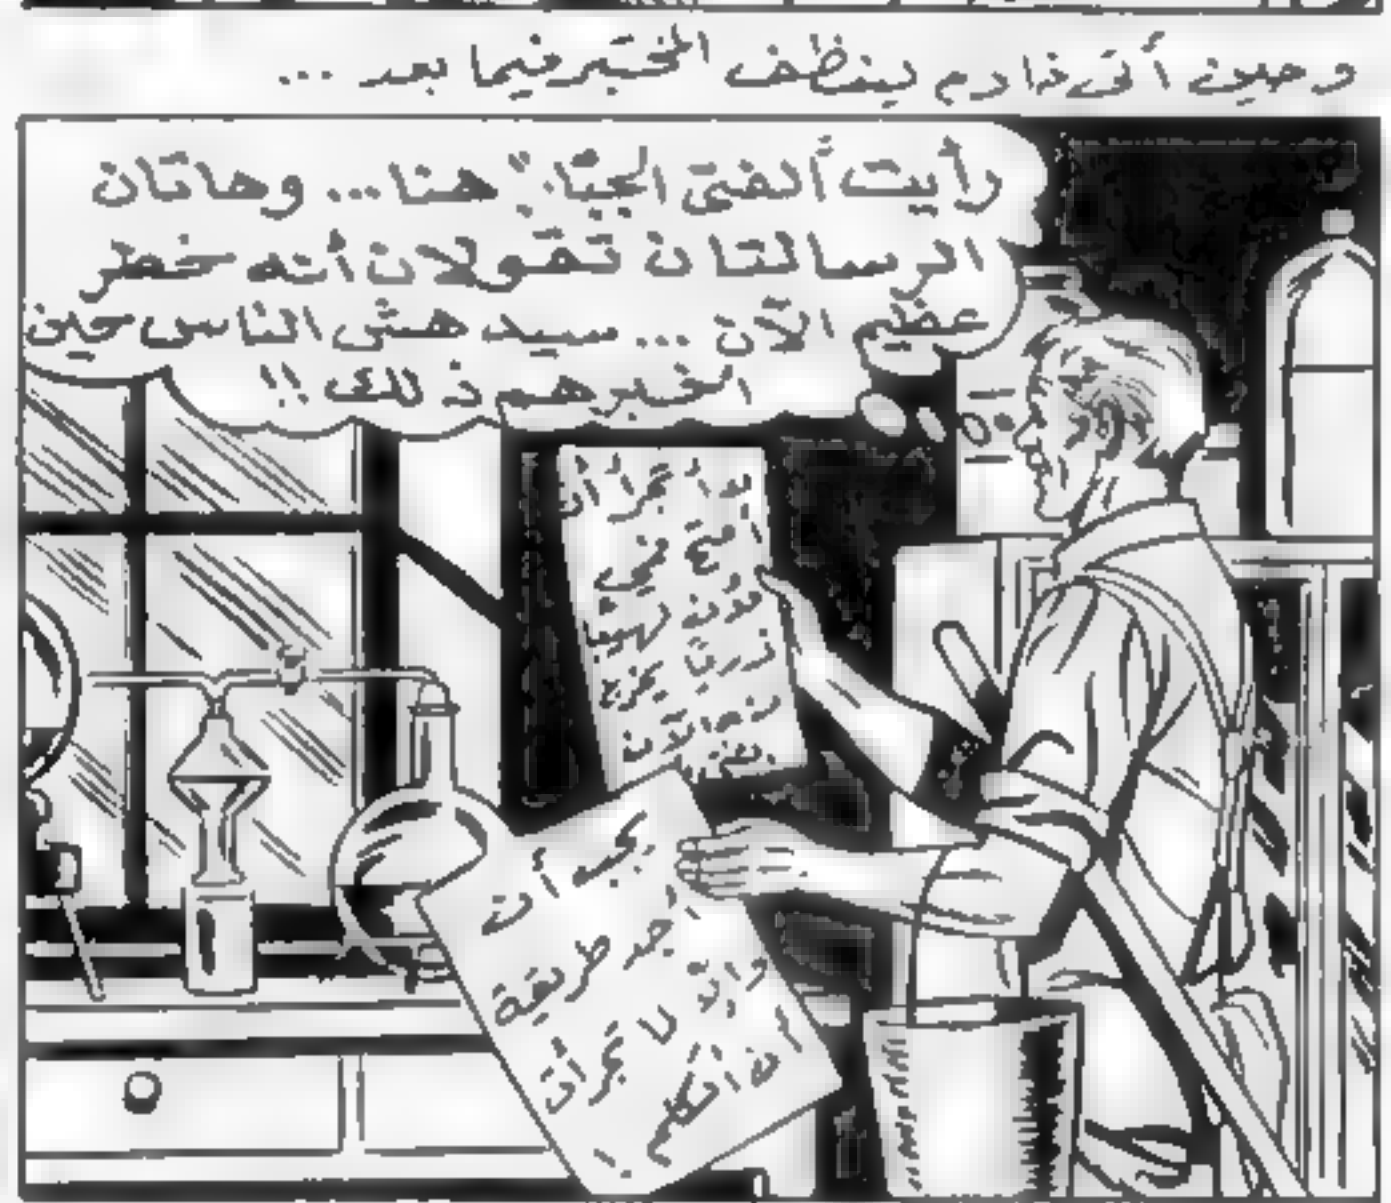 وحين أتى خادم لينظف المختبر فيما بعد ...
رأيت "الفتى الجبّار" هنا... وهاتان
الرسالتان تقولان أنه خطر
عظيم الآن ... سيدهش الناس حين
أخبرهم ذلك !!
لا تجرأ أن
أفتح فمي
لهيبًا
ذريًا يخرج
يجب أن
أجد طريقة
وإلّا لا تجرأن
أن أتكلم !